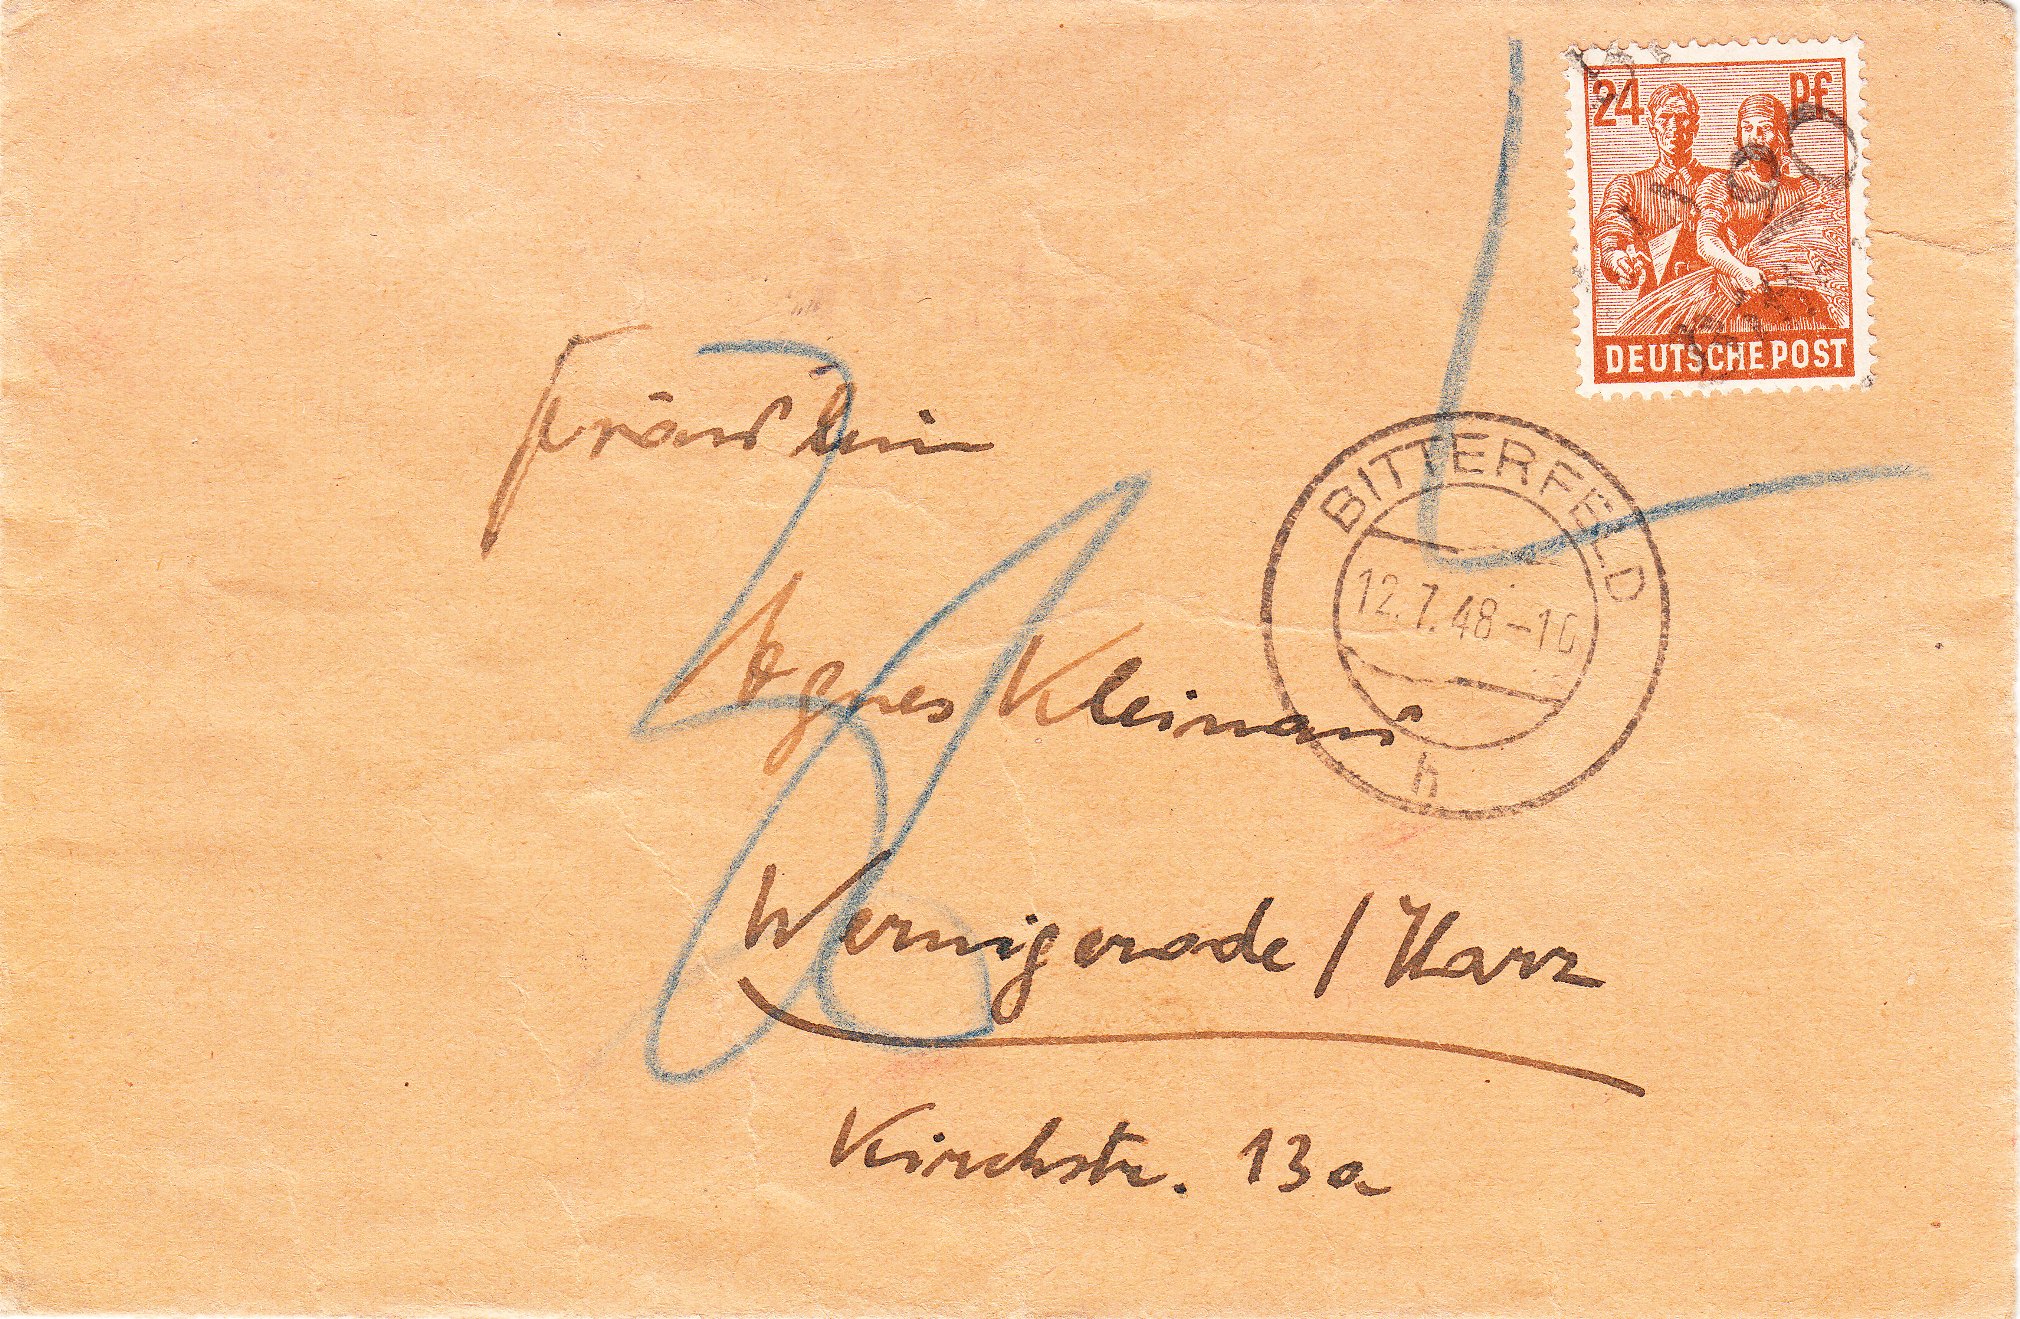 24 Pf
DEUTSCHE POST
BITTERFELD
12.7.48-10
h
Fräulein
Agnes Kleinau
Wernigerode / Harz
Kirchstr. 13a